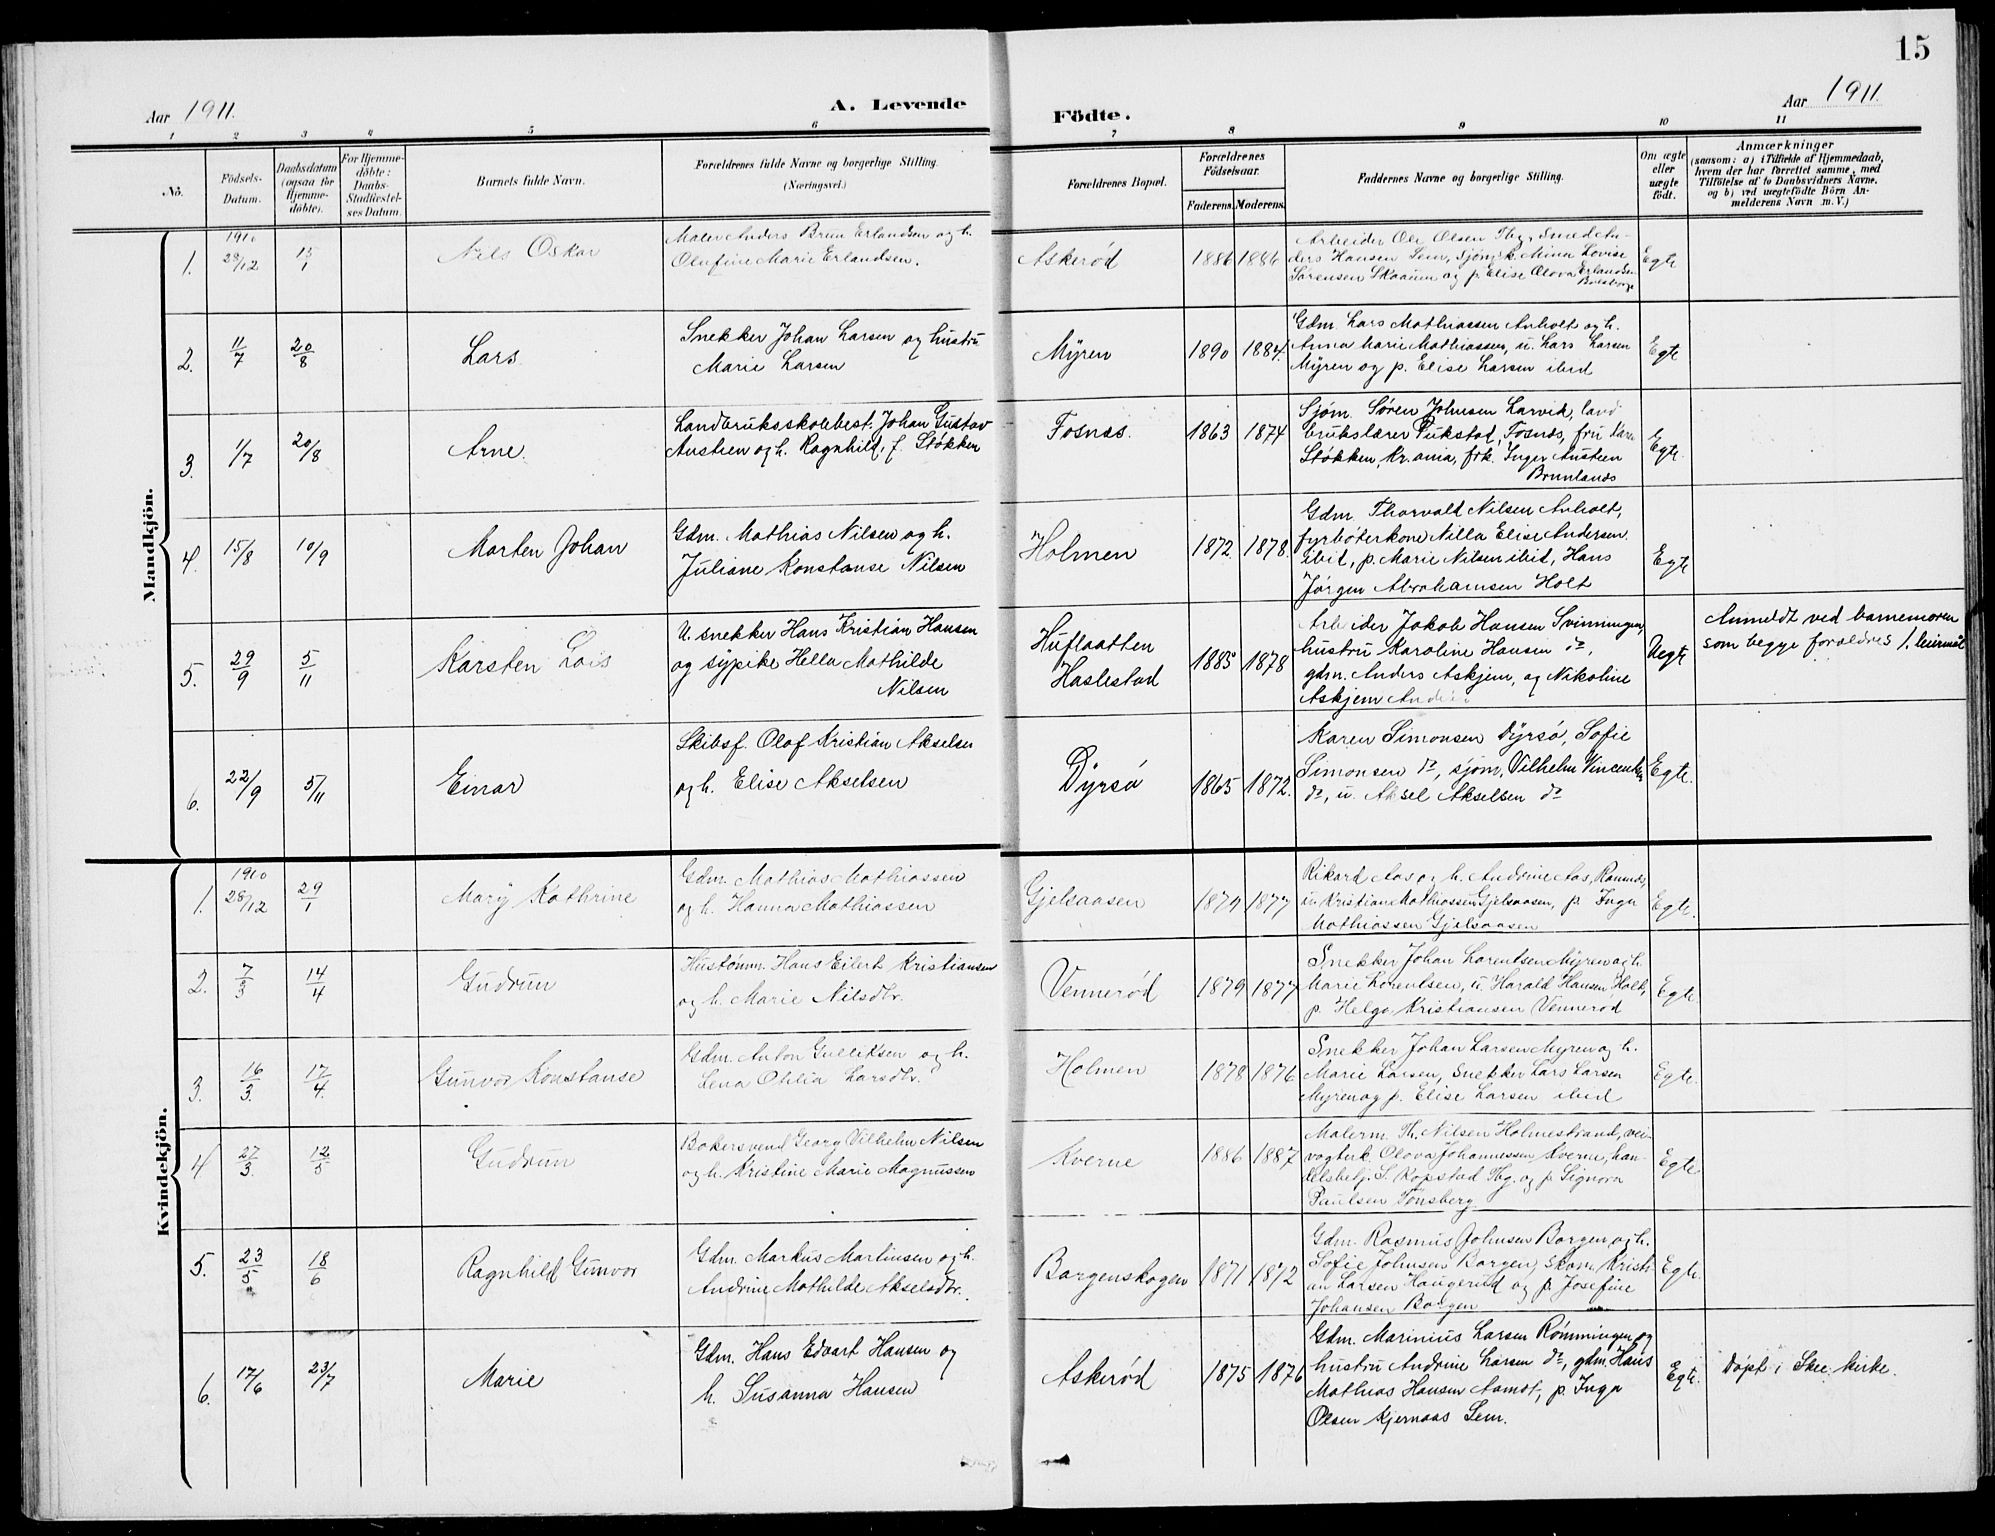 15
Aar 1911.
A. Levende
Födte.
Aar 1911.
1 2 3 4 5 6 7 8 9 10 11
No.
Födsels-
Datum.
Daabsdatum
(ogsaa for
Hjemme-
döbte).
For Hjemme-
döbte:
Daabs-
Stadfæstel-
ses Datum.
Barnets fulde Navn.
Forældrenes fulde Navne og borgerlige Stilling.
(Næringsvei.)
Forældrenes Bopæl.
Forældrenes
Födselsaar.
Faderens. Moderens.
Faddernes Navne og borgerlige Stilling.
Om ægte
eller
uægte
födt.
Anmærkninger
(saasom: a) i Tilfælde af Hjemmedaab,
hvem der har forrettet samme, med
Tilföielse af to Daabsvidners Navne,
og b) ved uægtefödte Börn An-
melderens Navn m. V.)
Mandkjön.
1. 1910 28/12 15/1 Nils Oskar
Maler Anders Brun Erlandsen og h.
Olufine Marie Erlandsen.
Askeröd 1886 1886
Arbeider Ole Olsen Tbg, Smed An-
ders Hansen Sem, sjöm.k. Mina Lovise
Sörensen Skaaum og p. Elise Olova Erlandsen
Egte
2. 11/7 20/8 Lars
Snekker Johan Larsen og hustru
Marie Larsen
Myren 1890 1884.
Gdm. Lars Mathiassen Anholt og h.
Anna Marie Mathiassen, u. Lars Larsen
Myren og p. Elise Larsen ibid
Egte
3. 1/7 20/8 Arne.
Landbruksskolebest. Johan Gustav
Austeen og h. Ragnhild, f. Stökken
Fosnæs. 1863 1874
Sjöm. Sören Johnsen Larvik, land
brukslærer Pukstad, Fosnæs, fru Kara
Stökken, Kr.ania, frk. Inger Austeen
Brunlanæs
Egte.
4. 15/8 10/9 Marten Johan
Gdm. Mathias Nilsen og h.
Juliane Konstanse Nilsen
Holmen 1872 1878.
Gdm. Thorvald Nilsen Anholt,
fyrböterkone Nilla Elise Andersen
ibid, p. Marie Nilsen ibid, Hans
Jörgen Abrahamsen Holt
Egte
5. 29/9 5/11 Karsten Lois
U. snekker Hans Kristian Hansen
og sypike Hella Mathilde
Nilsen
Huflaatten
Haslestad
1885 1878
Arbeider Jakob Hansen Svinningen,
hustru Karoline Hansen do,
gdm. Anders Askjem, og Nikoline
Askjem
Uegte
Anmeldt ved barnemoren
som begge forældres 1. leiermål
6. 22/9 5/11 Einar
Skibsf. Olaf Kristian Akselsen
og h. Elise Akselsen
Dyrsö 1865 1872.
Karen Simonsen Dyrsö, Sofie
Simonsen do, sjöm. Vilhelm Vincentsen
do, u. Aksel Akselsen do
Egte.
Kvindekjön.
1. 1910 28/12 29/1 Mary Kathrine
Gdm. Mathias Mathiassen
og h. Hanna Mathiassen
Gjelsaasen 1874 1877
Rikard Aas og h. Andrine Aas, Ramnæs,
u. Kristian Mathiassen Gjelsaasen, p. Inga
Mathiassen Gjelsaasen
Egte.
2. 7/3 14/4 Gudrun
Hustömm. Hans Eilert Kristiansen
og h. Marie Nilsdtr.
Venneröd 1879 1877
Snekker Johan Lorentsen Myren og h.
Marie Lorentsen, u. Harald Hansen Holt,
p. Helga Kristiansen Venneröd
Egte.
3. 16/3. 17/4. Gunvor Konstanse
Gdm. Anton Gulliksen og h.
Lena Othlia Larsdtr.
Holmen 1878 1876
Snekker Johan Larsen Myren og h.
Marie Larsen, Snekker Lars Larsen
Myren og p. Elise Larsen ibid
Egte.
4 27/3 12/5 Gudrun
Bakersvend Georg Vilhelm Nilsen
og h. Kristine Marie Magnussen
Kverne 1886 1887
Malerm. Th. Nilsen Holmestrand, vei-
vogterk. Olova Johannessen Kverne, han-
delsbetj. S. Kopstad Tbg. og p. Signora
Paulsen Tönsberg
Egte
5. 23/5 18/6 Ragnhild Gunvor
Gdm. Markus Martinsen og h.
Andrine Mathilde Akselsdtr.
Borgenskogen 1871 1872
Gdm. Rasmus Johnsen Borgen, og h.
Sofie Johnsen Borgen, Skom. Kristi-
an Larsen Haugerud og p. Josefine
Johansen Borgen
Egte.
6. 17/6 23/7 Marie
Gdm. Hans Edvart Hansen og
h. Susanna Hansen
Askeröd 1875 1876
Gdm. Marinius Larsen Römmingen og
hustru Andrine Larsen do, gdm. Hans
Mathias Hansen Aamot, p. Inga
Olsen Kjernaas Sem.
Egte.
Döpt i Skee kirke.